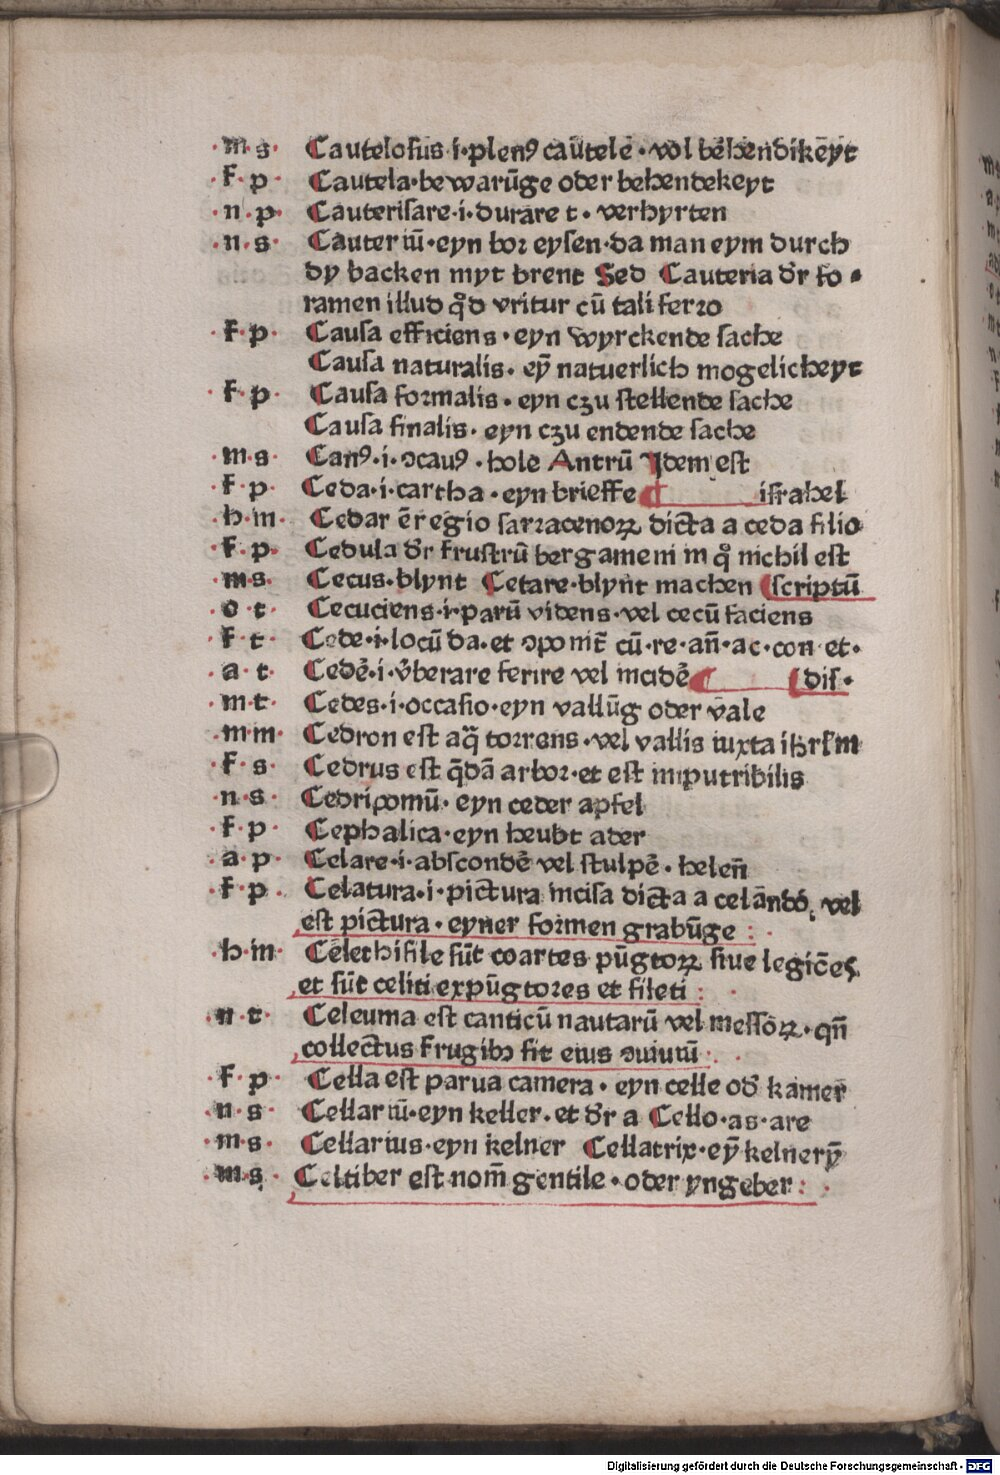 ·m·s· Cautelosus i·plenꝯ cautelē·vol bēhendikēyt
·f·p· Cautela·bewarūge oder behendekeyt
·n·p· Cauterisare·i·durare t·verhyrten
·n·s· Cauteriū·eyn bor eysen·da man eym durch
dy backen myt brent Sed Cauteria dr̄ fo⸗
ramen illud qd̄ vritur cū tali ferro
·f·p· Causa efficiens·eyn wyrckende sache
Causa naturalis·eyn̄ natuerlich mogelicheyt
·f·p· Causa formalis·eyn czu stellende sache
Causa finalis·eyn czu endende sache
·m·s· Canꝯ·i·ↄcauꝯ·hole Antrū Idem est
·f·p· Ceda·i·cartha·eyn brieffe israhel
·h·m· Cedar ē regio sarracenoꝝ dicta a ceda filio
·f·p· Cedula dr̄ frustrū bergameni in qͦ nichil est
·m·s· Cecus·blynt Cetare·blynt machen scriptū
·o·t· Cecuciens·i·parū videns·vel cecū faciens
·f·t· Cede·i·locū da·et ↄponit̄ cū·re·an̄·ac·con·et·
·a·t· Cedē·i·v̄berare ferire vel incidē dis·
·m·t· Cedes·i·occasio·eyn vallūg oder vale
·m·m· Cedron est aq̄ torrens·vel vallis iuxta ihrlm
·f·s· Cedrus est q̄dā arbor·et est inputribilis
·n·s· Cedripomū·eyn ceder apfel
·f·p· Cephalica·eyn heubt ader
·a·p· Celare·i·abscondē vel stulpē·helen̄
·f·p· Celatura·i·pictura incisa dicta a celāndo, vel
est pictura·eyner formen grabūge :·
·h·m· Celethifile sūt coartes pūgtoꝝ siue legiōes
et sūt celiti expūgtores et fileti :·
·n·t· Celeuma est canticū nautarū vel messoꝝ·qn̄
collectus frugibꝫ fit eius ↄuiuiū :·
·f·p· Cella est parua camera·eyn celle od̄ kamer
·n·s· Cellariū·eyn keller·et dr̄ a Cello·as·are
·m·s· Cellarius·eyn kelner Cellatrix·eȳ kelnerȳ
·m·s· Celtiber est nom̄ gentile·oder yngeber :·
Digitalisierung gefördert durch die Deutsche Forschungsgemeinschaft - DFG